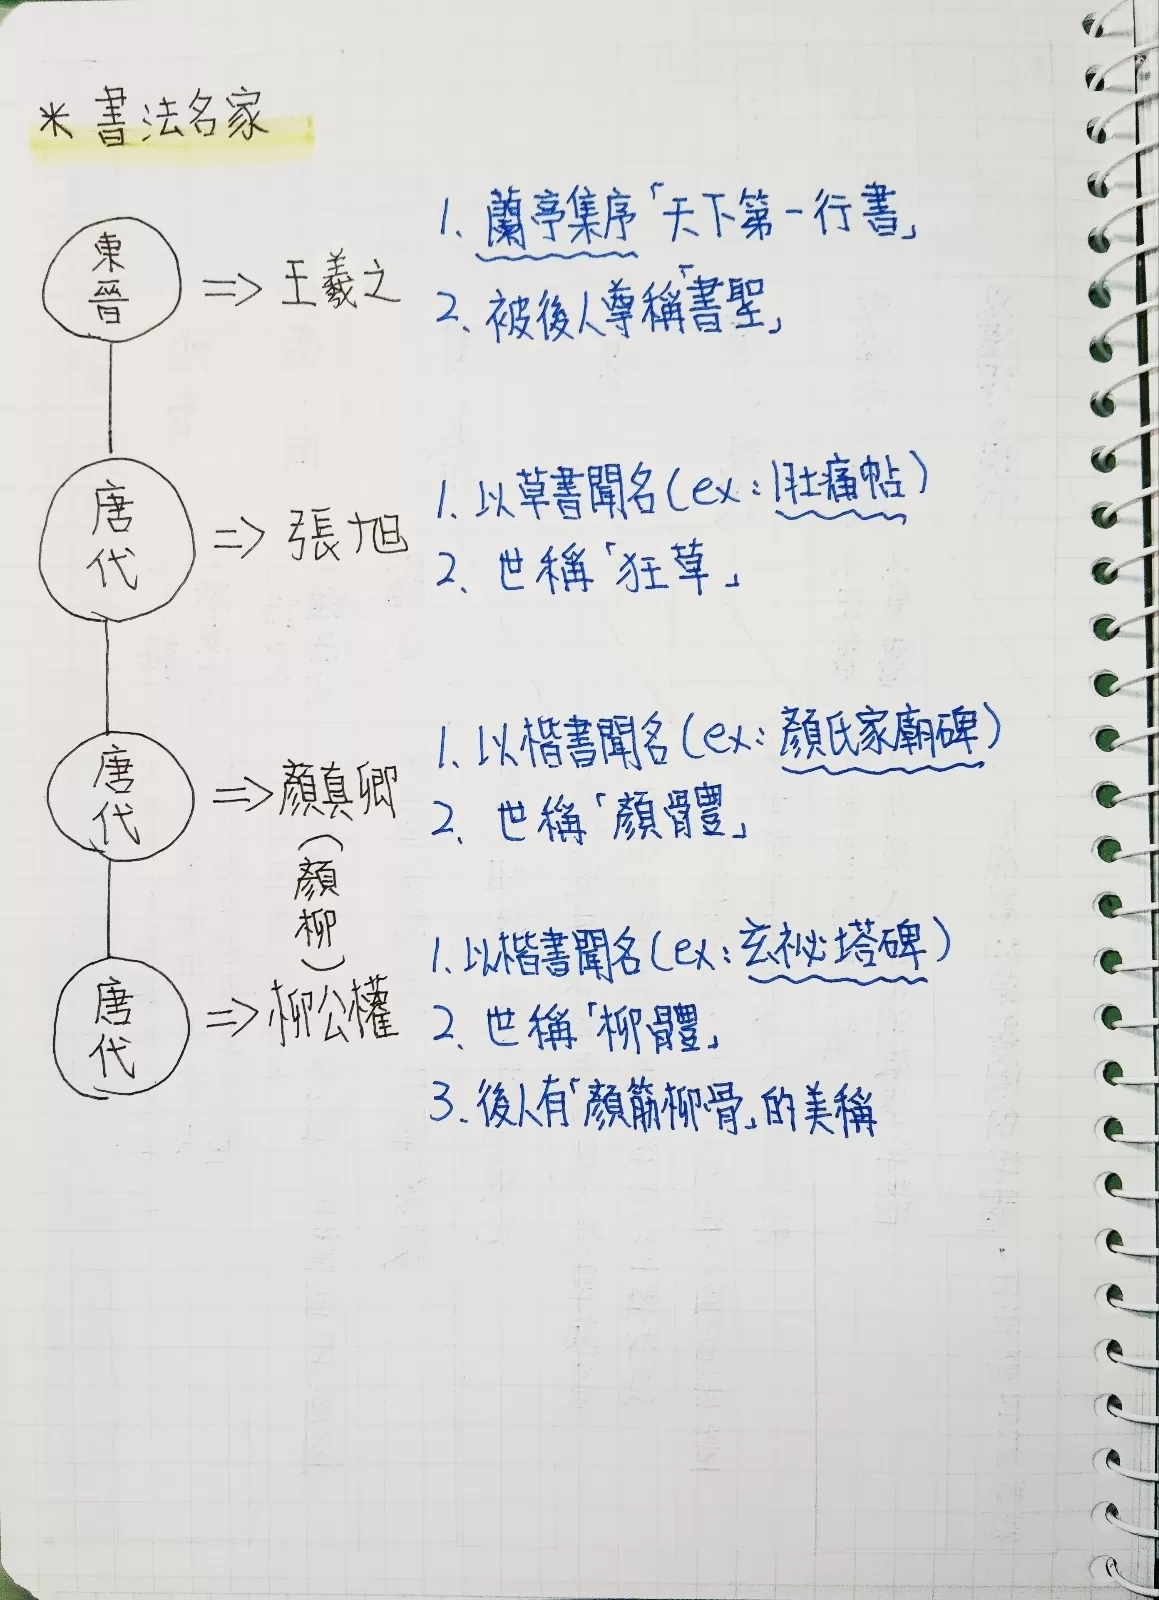 * 書法名家
東晉 => 王羲之
1. 蘭亭集序「天下第一行書」
2. 被後人尊稱「書聖」
唐代 => 張旭
1. 以草書聞名(ex:肚痛帖)
2. 世稱「狂草」
唐代 => 顏真卿
1. 以楷書聞名(ex:顏氏家廟碑)
2. 世稱「顏體」
(顏柳)
唐代 => 柳公權
1. 以楷書聞名(ex:玄祕塔碑)
2. 世稱「柳體」
3. 後人有「顏筋柳骨」的美稱